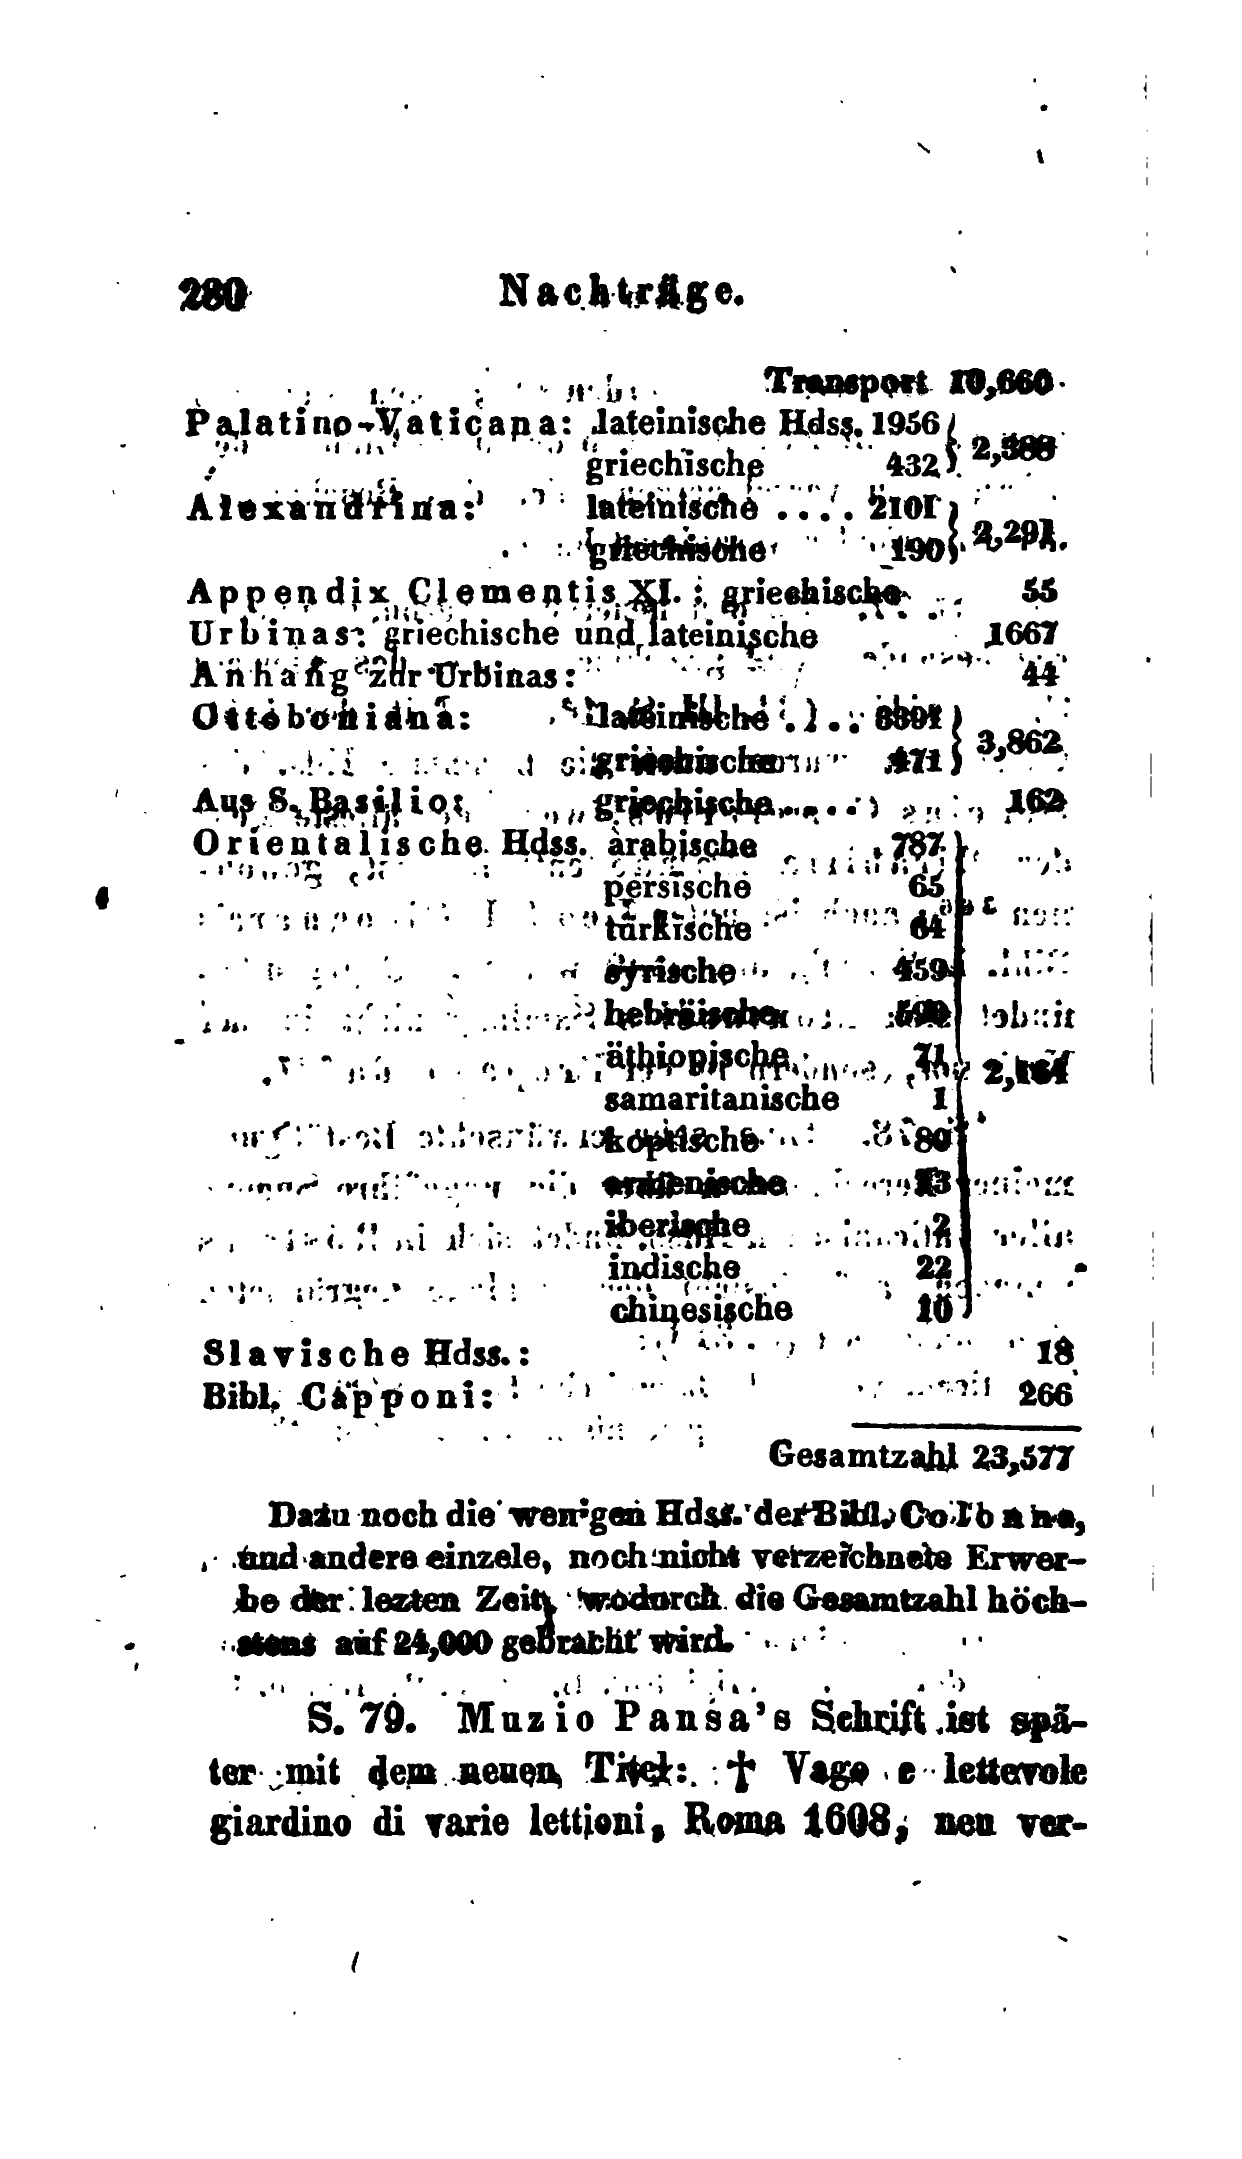 280 Nachträge.
Transport 10,660
Palatino-Vaticana: lateinische Hdss. 1956 } 2,388
griechische 432
Alexandrina: lateinische .... 2101 } 2,291
griechische 190
Appendix Clementis XI.: griechische 55
Urbinas: griechische und lateinische 1667
Anhang zur Urbinas: 44
Ottoboniana: lateinische .... 3391 } 3,862
griechische 471
Aus S. Basilio: griechische..... 162
Orientalische Hdss. arabische 787
persische 65
türkische 64
syrische 459
hebräische 590
äthiopische 71
2,164
samaritanische 1
koptische 80
armenische 13
iberische 2
indische 22
chinesische 10
Slavische Hdss.: 18
Bibl. Capponi: 266
Gesamtzahl 23,577
Dazu noch die wenigen Hdss. der Bibl. Colonna,
und andere einzele, noch nicht verzeichnete Erwer-
be der lezten Zeit, wodurch die Gesamtzahl höch-
stens auf 24,000 gebracht wird.
S. 79. Muzio Pansa's Schrift ist spä-
ter mit dem neuen Titel: † Vago e lettevole
giardino di varie lettioni, Roma 1608, neu ver-